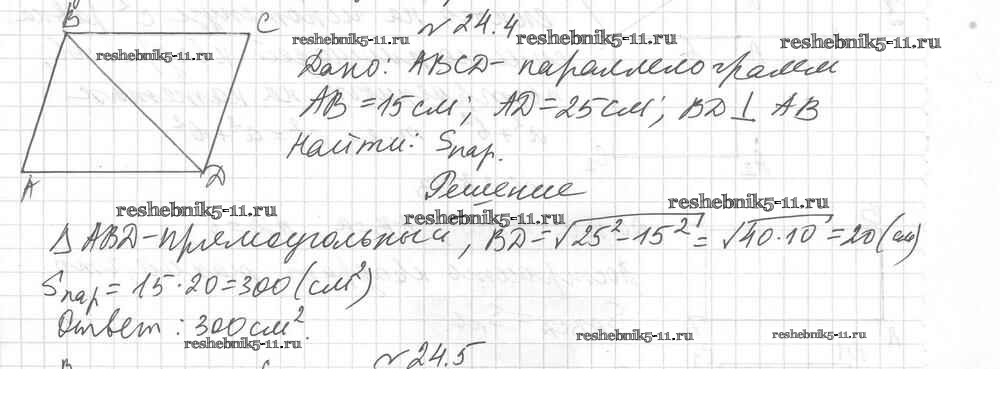 B C № 24.4
reshebnik5-11.ru reshebnik5-11.ru reshebnik5-11.ru reshebnik5-11.ru
Дано: ABCD - параллелограмм
AB = 15 см; AD = 25 см; BD ⊥ AB
Найти: Sпар.
A D
Решение
reshebnik5-11.ru reshebnik5-11.ru reshebnik5-11.ru
Δ ABD - прямоугольный, BD = √25² - 15² = √40·10 = 20 (см)
Sпар = 15·20 = 300 (см²)
Ответ: 300 см².
reshebnik5-11.ru reshebnik5-11.ru reshebnik5-11.ru
№ 24.5